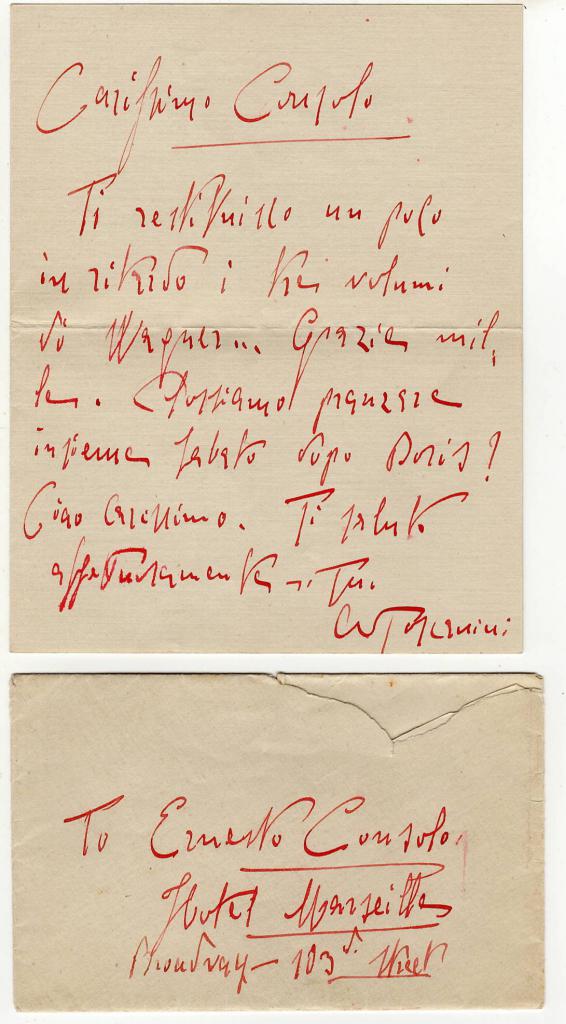 Carissimo Consolo
Ti restituisco un poco
in ritardo i tre volumi
di Wagner... Grazie mil,
le. Possiamo pranzare
insieme sabato dopo Boris?
Ciao carissimo. Ti saluto
affettuosamente, tuo
A Toscanini
To Ernesto Consolo.
Hotel Marseilles
Broadway - 103d. Street